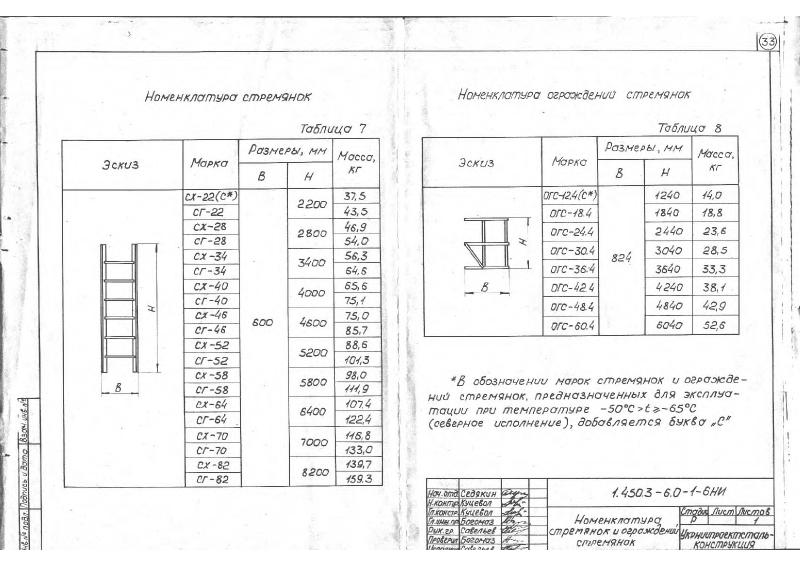 33
Номенклатура стремянок
Таблица 7
Эскиз Марка Размеры, мм Масса, кг
В Н
СХ-22(С*) 600 2200 37,5
СГ-22 43,5
СХ-28 2800 46,9
СГ-28 54,0
СХ-34 3400 56,3
СГ-34 64,6
СХ-40 4000 65,6
СГ-40 75,1
СХ-46 4600 75,0
СГ-46 85,7
СХ-52 5200 88,6
СГ-52 101,3
СХ-58 5800 98,0
СГ-58 111,9
СХ-64 6400 107,4
СГ-64 122,4
СХ-70 7000 116,8
СГ-70 133,0
СХ-82 8200 139,7
СГ-82 159.3
Н
В
Номенклатура ограждений стремянок
Таблица 8
Эскиз Марка Размеры, мм Масса, кг
В Н
ОГС-12.4(С*) 824 1240 14,0
ОГС-18.4 1840 18,8
ОГС-24.4 2440 23,6
ОГС-30.4 3040 28,5
ОГС-36.4 3640 33,3
ОГС-42.4 4240 38,1
ОГС-48.4 4840 42,9
ОГС-60.4 6040 52,6
Н
В
*В обозначении марок стремянок и огражде-
ний стремянок, предназначенных для эксплуа-
тации при температуре -50°С>t≥-65°С
(северное исполнение), добавляется буква „С"
1.450.3-6.0-1-6НИ
Нач. отд. Седякин
Н.контр. Куцевол
Гл.констр. Куцевол
Гл.инж.пр. Богомаз
Рук. гр. Савельев
Проверил Богомаз
Номенклатура
стремянок и ограждений
стремянок
Стадия Лист Листов
Р 1
Укрниипроектсталь-
конструкция
Инв.№ подл. Подпись и дата Взам. инв.№